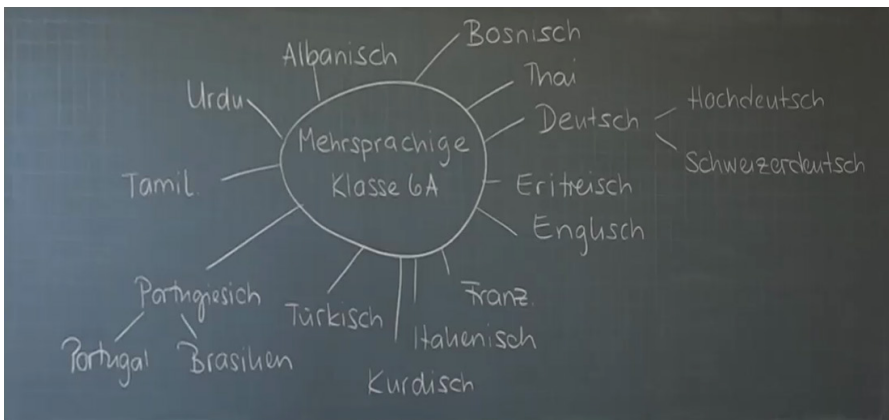 Mehrsprachige
Klasse 6A
Bosnisch
Thai
Deutsch
Hochdeutsch
Schweizerdeutsch
Eritreisch
Englisch
Franz.
Italienisch
Kurdisch
Türkisch
Portugiesich
Portugal
Brasilien
Tamil.
Urdu
Albanisch